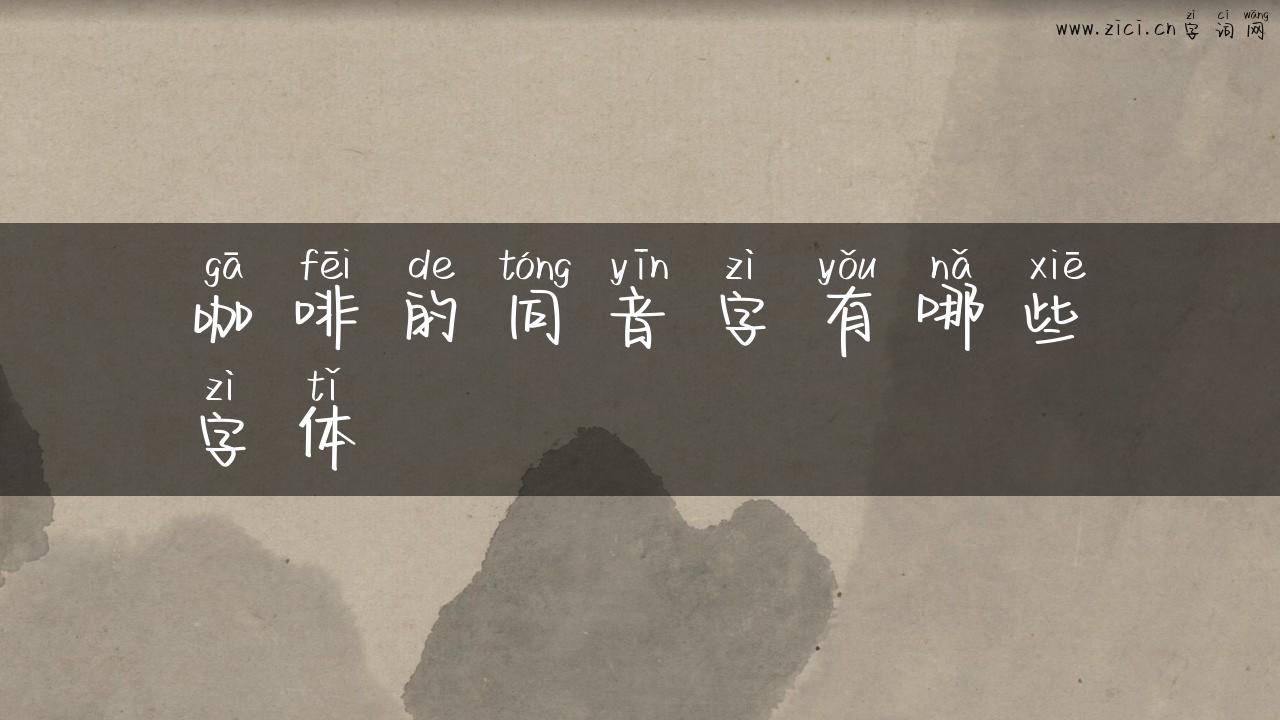 zì cí wǎng
www.zici.cn 字 词 网
gā fēi de tóng yīn zì yǒu nǎ xiē
咖 啡 的 同 音 字 有 哪 些
zì tǐ
字 体